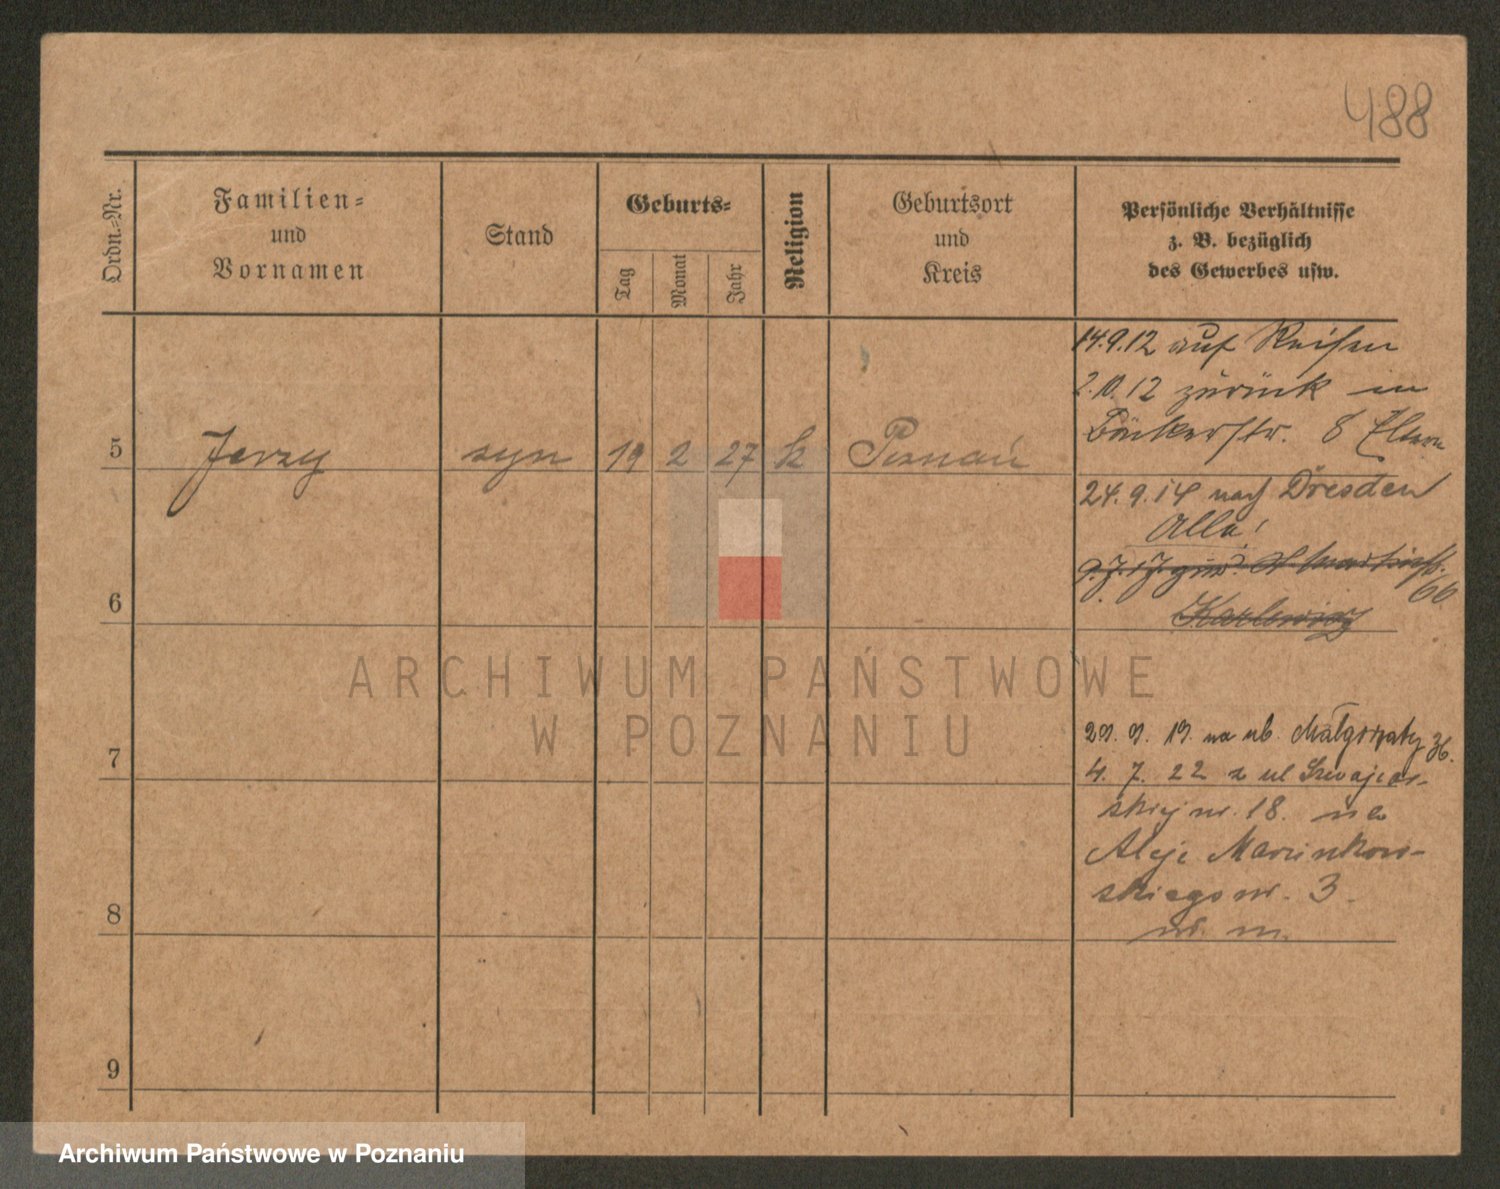 488
Ordn.-Nr.
Familien-
und
Vornamen
Stand
Geburts-
Tag
Monat
Jahr
Religion
Geburtsort
und
Kreis
Persönliche Verhältnisse
z. B. bezüglich
des Gewerbes usw.
14.9.12 auf Reisen
2.10.12 zurück in
Bäckerstr. 8 Eltern
5 Jerzy syn 19 2 27 k Poznań
24.9.14 nach Dresden
Alla!
66
6
ARCHIWUM PAŃSTWOWE
W POZNANIU
29. 9. 19. na ub. Małgorzaty 36.
7
4. 7. 22 z ul Szwajcar-
skiej nr. 18. na
Aleje Marcinkow-
skiego nr. 3.
8
w. m.
9
Archiwum Państwowe w Poznaniu